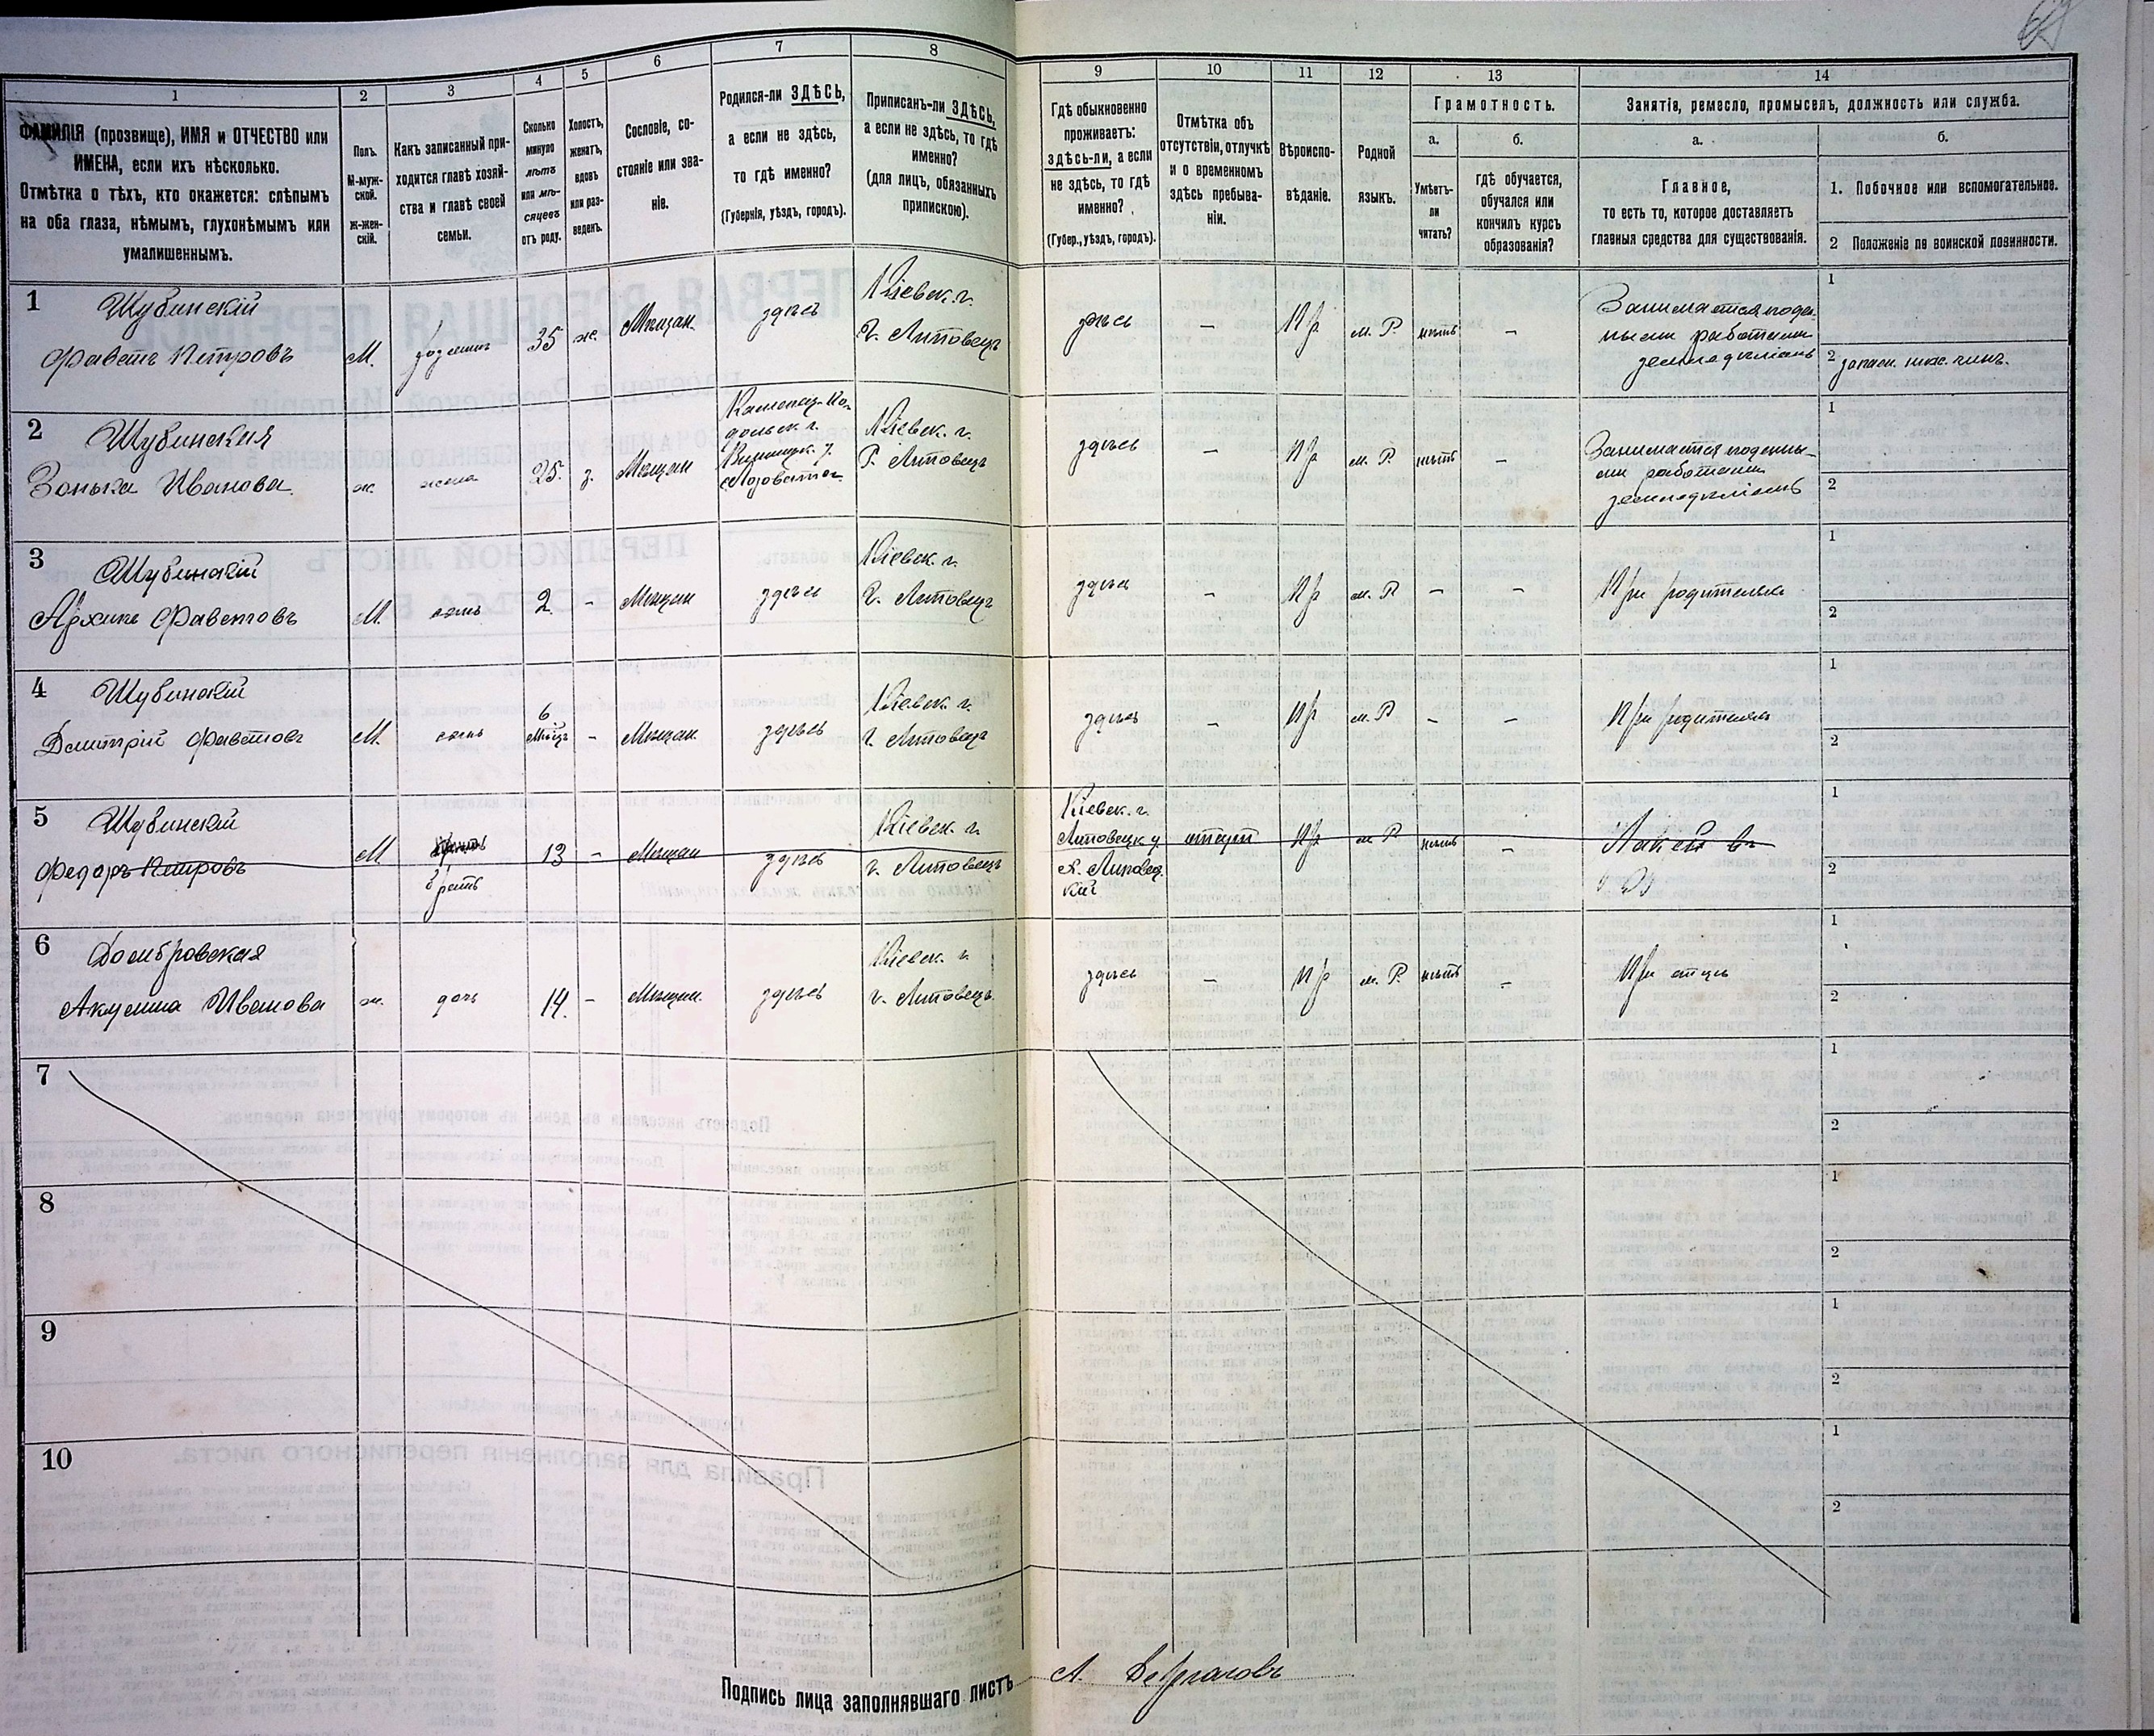 1
2
3
4
5
6
7
8
ФАМИЛІЯ (прозвище), ИМЯ и ОТЧЕСТВО или
ИМЕНА, если ихъ нѣсколько.
Отмѣтка о тѣхъ, кто окажется: слѣпымъ
на оба глаза, нѣмымъ, глухонѣмымъ или
умалишеннымъ.
Полъ.
М-муж-
ской.
ж-жен-
скій.
Какъ записанный при-
ходится главѣ хозяй-
ства и главѣ своей
семьи.
Сколько
минуло
лѣтъ
или мѣ-
сяцевъ
отъ роду.
Холостъ,
женатъ,
вдовъ
или раз-
веденъ.
Сословіе, со-
стояніе или зва-
ніе.
Родился-ли ЗДѢСЬ,
а если не здѣсь,
то гдѣ именно?
(Губернія, уѣздъ, городъ).
Приписанъ-ли ЗДѢСЬ,
а если не здѣсь, то гдѣ
именно?
(для лицъ, обязанныхъ
припискою).
9
10
11
12
13
14
Гдѣ обыкновенно
проживаетъ:
здѣсь-ли, а если
не здѣсь, то гдѣ
именно?
(Губер., уѣздъ, городъ).
Отмѣтка объ
отсутствіи, отлучкѣ
и о временномъ
здѣсь пребыва-
ніи.
Вѣроиспо-
вѣданіе.
Родной
языкъ.
Грамотность.
а.
Умѣетъ-
ли
читать?
б.
гдѣ обучается,
обучался или
кончилъ курсъ
образованія?
Занятія, ремесло, промыселъ, должность или служба.
а.
Главное,
то есть то, которое доставляетъ
главныя средства для существованія.
б.
1. Побочное или вспомогательное.
2 Положеніе по воинской повинности.
1 Шубинскій
Фаветъ Петровъ
М.
хозяинъ
35
ж.
Мѣщан.
здѣсь
Кіевск. г.
г. Липовецъ
здѣсь
–
Пр
м. Р.
нѣтъ
–
Занимается поден-
ными работами
земледѣліемъ
1
2 запасн. ниж. чинъ.
2 Шубинская
Зонька Иванова
ж.
жена
25.
з.
Мѣщан
Каменец-По-
дольск г.
Винницк. у.
Кіевск. г.
г. Липовецъ
здѣсь
–
Пр
м. Р.
нѣтъ
–
Занимается поденны-
ми работами
земледѣліемъ
1
2
3 Шубинскій
Архипъ Фаветовъ
М.
сынъ
2
–
Мѣщан
здѣсь
Кіевск. г.
г. Липовецъ
здѣсь
–
Пр
м. Р
–
–
При родителяхъ
1
2
4 Шубинскій
Дмитрій Фаветовъ
М.
сынъ
6
Мѣсяц
–
Мѣщан.
здѣсь
Кіевск. г.
г. Липовецъ
здѣсь
–
Пр
м. Р
–
–
При родителяхъ
1
2
5 Шубинскій
Федоръ Петровъ
М.
братъ
13
–
Мѣщан
здѣсь
Кіевск. г.
г. Липовецъ
Кіевск. г.
Липовецк у
Липовец
кій
отсут
Пр
м Р
нѣтъ
–
Лакей въ
1
2
6 Домбровская
Акулина Иванова
ж.
дочь
14.
–
Мѣщан.
здѣсь
Кіевск. г.
г. Липовецъ.
здѣсь
–
Пр
м. Р.
нѣтъ
–
При отцѣ
1
2
7
1
2
8
1
2
9
1
2
10
1
2
Подпись лица заполнявшаго листъ